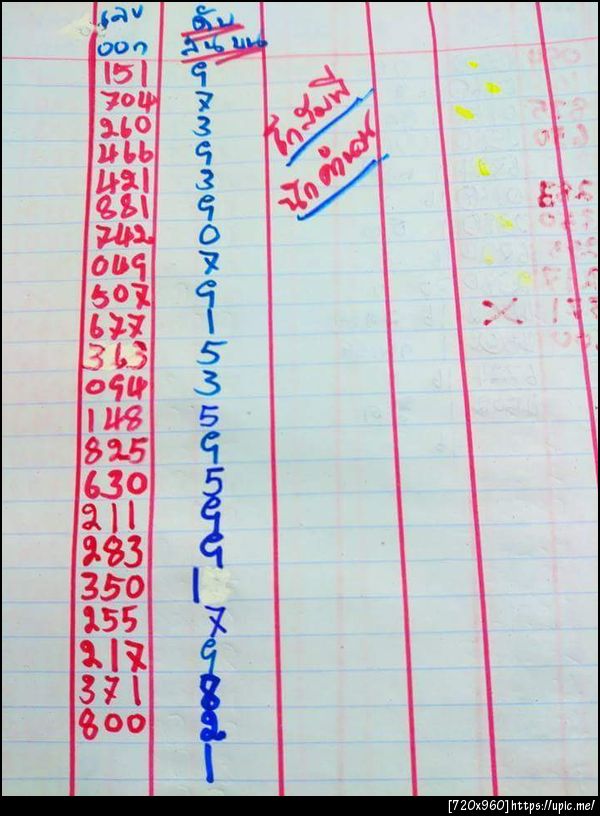 เลข ดับ
ออก สิบ บน
151 9
704 7
260 3
466 9
421 3
881 9
742 0
049 7
507 9
677 1
363 5
094 3
148 5
825 9
630 5
211 9
283 9
350 1
255 7
217 9
371 8
800 2
1
[720x960]https://upic.me/